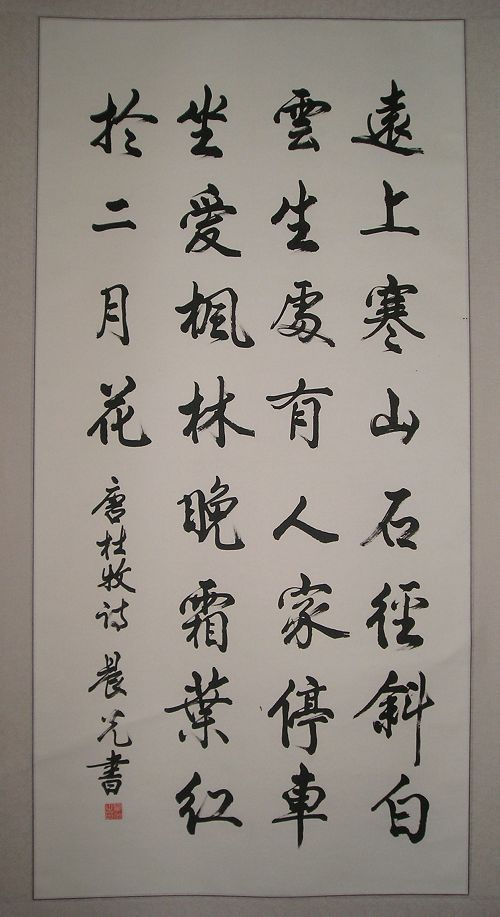 遠上寒山石徑斜白
雲生處有人家停車
坐愛楓林晚霜葉紅
於二月花 唐杜牧诗 晨光書